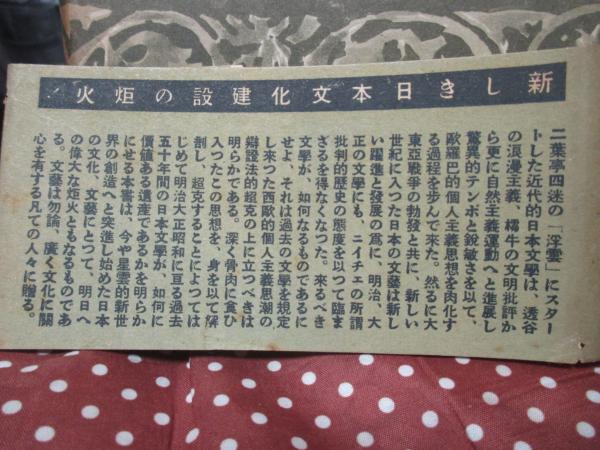 新しき日本文化建設の炬火
二葉亭四迷の「浮雲」にスター
トした近代的日本文學は、透谷
の浪漫主義、樗牛の文明批評か
ら更に自然主義運動へと進展し
驚異的テンポと銳敏さを以て、
歐羅巴的個人主義思想を肉化す
る過程を歩んで來た。然るに大
東亞戰爭の勃發と共に、新しい
世紀に入つた日本の文藝は新し
い躍進と發展の爲に、明治、大
正の文學にも、ニイチェの所謂
批判的歷史の態度を以つて臨ま
ざるを得なくなつた。來るべき
文學が、如何なるものであるに
せよ、それは過去の文學を規定
し來つた西歐的個人主義思潮の
辯證法的超克の上に立つべきは
明らかである。深く骨肉に食ひ
入つたこの思想を、身を以て解
剖し、超克することによつては
じめて明治大正昭和に亘る過去
五十年間の日本文學が、如何に
價値ある遺產であるかを明らか
にせる本書は、今や星雲的新世
界の創造へと突進し始めた日本
の文化、文藝にとつて、明日へ
の偉大な炬火ともなるものであ
る。文藝は勿論、廣く文化に關
心を有する凡ての人々に贈る。